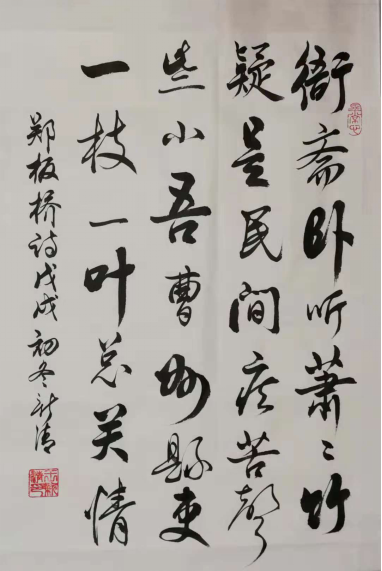 衙斋卧听萧萧竹
疑是民间疾苦声
些小吾曹州县吏
一枝一叶总关情
郑板桥诗戊戌初冬新清